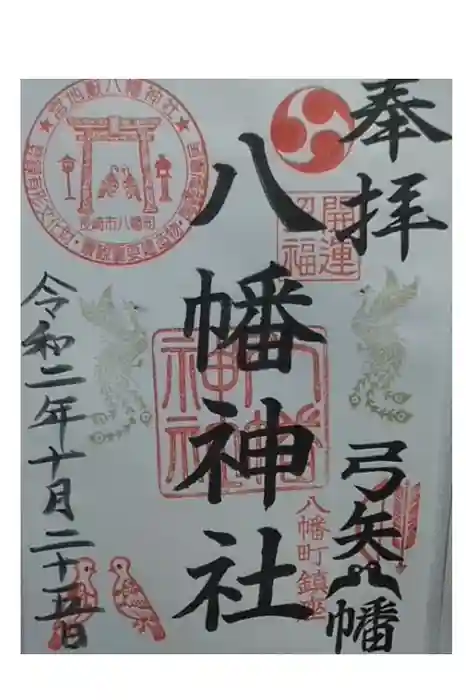 奉拝
開運
招福
弓矢八幡
八幡町鎮座
八幡神社
宮地嶽八幡神社
長崎市八幡町
令和二年十月二十五日